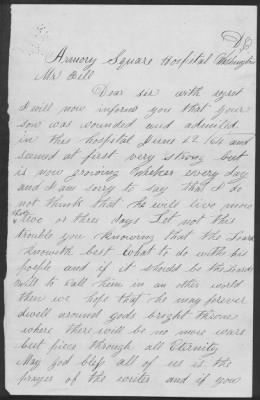 Armory Square Hospital Washington
Mr Hill
Dear sir with regret
I will now inform you that your
son was wounded and admitted
in this hospital June 22 / 64 and
seamed at first very strong but
is now growing Wheker every day
and I am sorry to say that I do
not think that he will live more
than
two or three days Let not this
trouble you knowing that the Lord
knoweth best What to do with his
people and if it should be the Lords
will to call them in an other world
then we hope that he may forever
dwell around gods bright throne
where there will be no more wars
but piece through all Eternity
May god bless all of us is the
prayer of the writer and if you